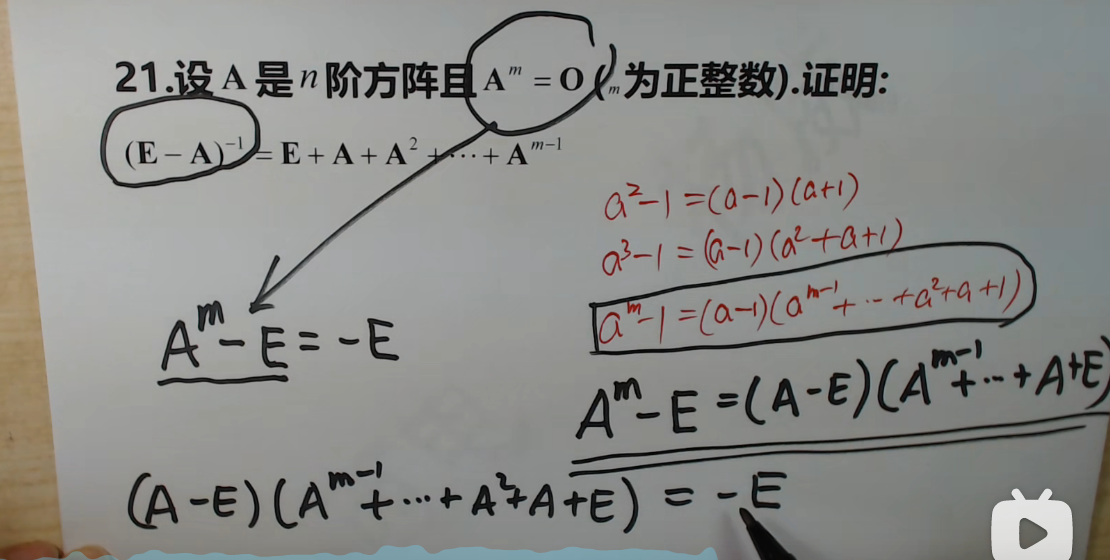 21.设 A 是 n 阶方阵且 A^m = O (m 为正整数).证明:
(E − A)^{-1} = E + A + A^2 + ⋯ + A^{m−1}
a^2-1=(a-1)(a+1)
a^3-1=(a-1)(a^2+a+1)
a^m-1=(a-1)(a^{m-1}+⋯+a^2+a+1)
A^m-E=-E
A^m-E=(A-E)(A^{m-1}+⋯+A+E)
(A-E)(A^{m-1}+⋯+A^2+A+E)=-E